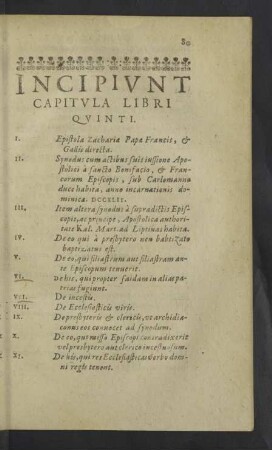 80
INCIPIVNT
CAPITVLA LIBRI
QVINTI.
I. Epistola Zachariæ Papæ Francis, &
Gallis directa.
II. Synodus cum actibus suis iussione Apo-
stolica à sancto Bonifacio, & Fran-
corum Episcopis, sub Carlomanno
duce habita, anno incarnationis do-
minicæ. DCCXLII.
III. Item altera synodus à supradictis Epis-
copis, ac principe, Apostolica authori-
tate Kal. Mart. ad Liptinas habita.
IV. De eo qui à presbytero non baptizato
baptizatus est.
V. De eo, qui filiastram aut filiastram an-
te Episcopum tenuerit.
VI. De his, qui propter faidam in alias pa-
trias fugiunt.
VII. De incestis.
VIII. De Ecclesiasticis viris.
IX. De presbyteris & clericis, vt archidia-
conus eos conuocet ad synodum.
X. De eo, qui missò Episcopi contradixerit
vel presbytero aut clerico incestuosum.
XI. De his, qui res Ecclesiasticas verbo domi-
ni regis tenent.